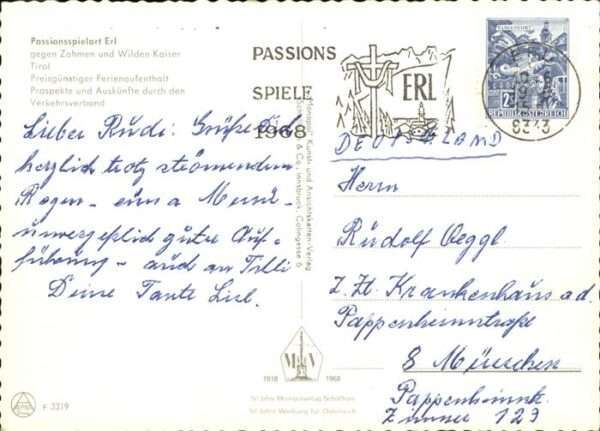 Passionsspielort Erl
gegen Zahmen und Wilden Kaiser
Tirol
Preisgünstiger Ferienaufenthalt
Prospekte und Auskünfte durch den
Verkehrsverband
PASSIONS
SPIELE
1968
ERL
8343
KLAGENFURT
2S
REPUBLIK ÖSTERREICH
Lieber Rudi! Grüße Dich
herzlich trotz strömendem
Regen -
gute Auf-
führung - auch an Tilli
Deine Tante Lisl.
DEUTSCHLAND
Herrn
Rudolf Oeggl
z. Zt. Krankenhaus a.d.
Pappenheimstraße
8 München
Pappenheimstr.
Zimmer 123
Kunst- und Ansichtskarten-Verlag
& Co., Innsbruck, Colingasse 6
1918 1968
50 Jahre Werbung für Österreich
F 3319